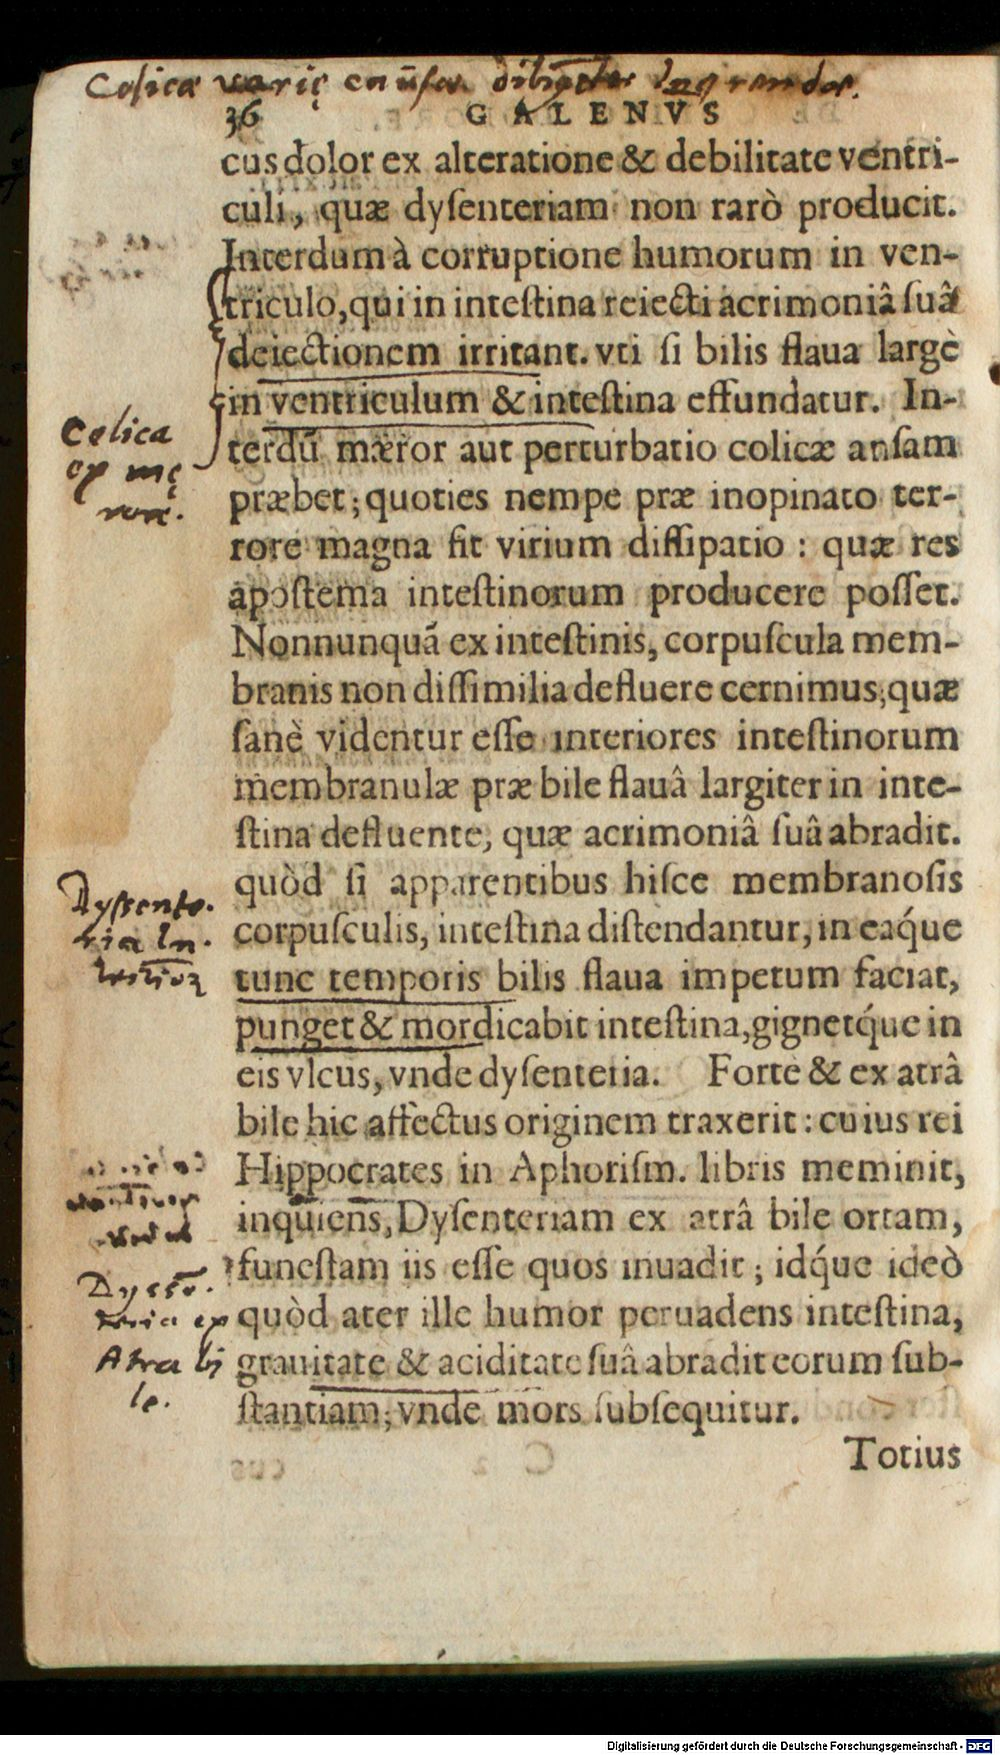 Colicæ varię causæ
36 GALENVS
cus dolor ex alteratione & debilitate ventri-
culi, quæ dysenteriam non rarò producit.
Interdum à corruptione humorum in ven-
triculo, qui in intestina reiecti acrimoniâ suâ
deiectionem irritant. vti si bilis flaua largè
in ventriculum & intestina effundatur. In-
Colica
terdū mæror aut perturbatio colicæ ansam
ex mę
præbet; quoties nempe præ inopinato ter-
rore.
rore magna fit virium dissipatio: quæ res
apostema intestinorum producere posset.
Nonnunquā ex intestinis, corpuscula mem-
branis non dissimilia defluere cernimus, quæ
sanè videntur esse interiores intestinorum
membranulæ præ bile flauâ largiter in inte-
stina defluente, quæ acrimoniâ suâ abradit.
quòd si apparentibus hisce membranosis
Dyssente-
corpusculis, intestina distendantur, in eaq́ue
ria In-
tunc temporis bilis flaua impetum faciat,
punget & mordicabit intestina, gignetq́ue in
eis vlcus, vnde dysenteria. Forte & ex atrâ
bile hic affectus originem traxerit: cuius rei
Hippocrates in Aphorism. libris meminit,
inquiens, Dysenteriam ex atrâ bile ortam,
funestam iis esse quos inuadit; idq́ue ideò
quòd ater ille humor peruadens intestina,
teria ex
grauitate & aciditate suâ abradit eorum sub-
Atra bi
stantiam; vnde mors subsequitur.
le.
Totius
Digitalisierung gefördert durch die Deutsche Forschungsgemeinschaft - DFG